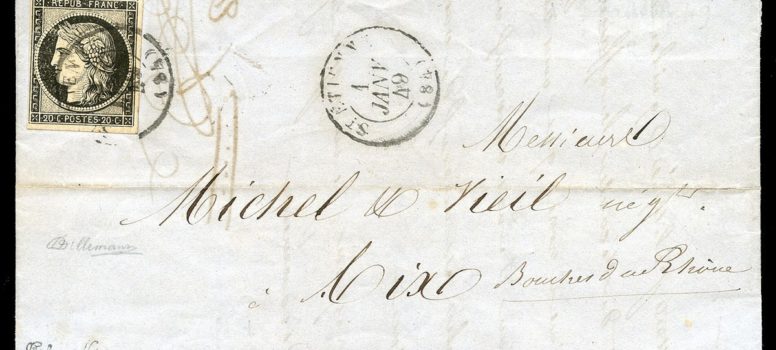 REPUB. FRANC.
20 C. POSTES. 20 C.
(84)
ST ETIENNE
1
JANV
49
(84)
Messieurs
Michel & Vieil négts.
à Aix Bouches du Rhône